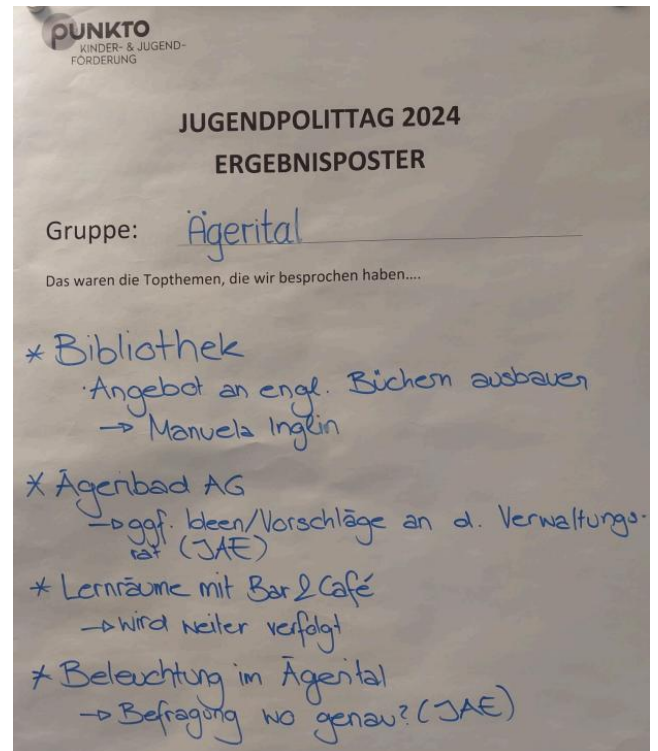 PUNKTO
KINDER- & JUGEND-
FÖRDERUNG
JUGENDPOLITTAG 2024
ERGEBNISPOSTER
Gruppe: Ägerital
Das waren die Topthemen, die wir besprochen haben....
* Bibliothek
· Angebot an engl. Büchern ausbauen
→ Manuela Inglin
* Ägeribad AG
→ ggf. Ideen/Vorschläge an d. Verwaltungs-
rat (JAE)
* Lernräume mit Bar & Café
→ wird weiter verfolgt
* Beleuchtung im Ägerital
→ Befragung wo genau? (JAE)